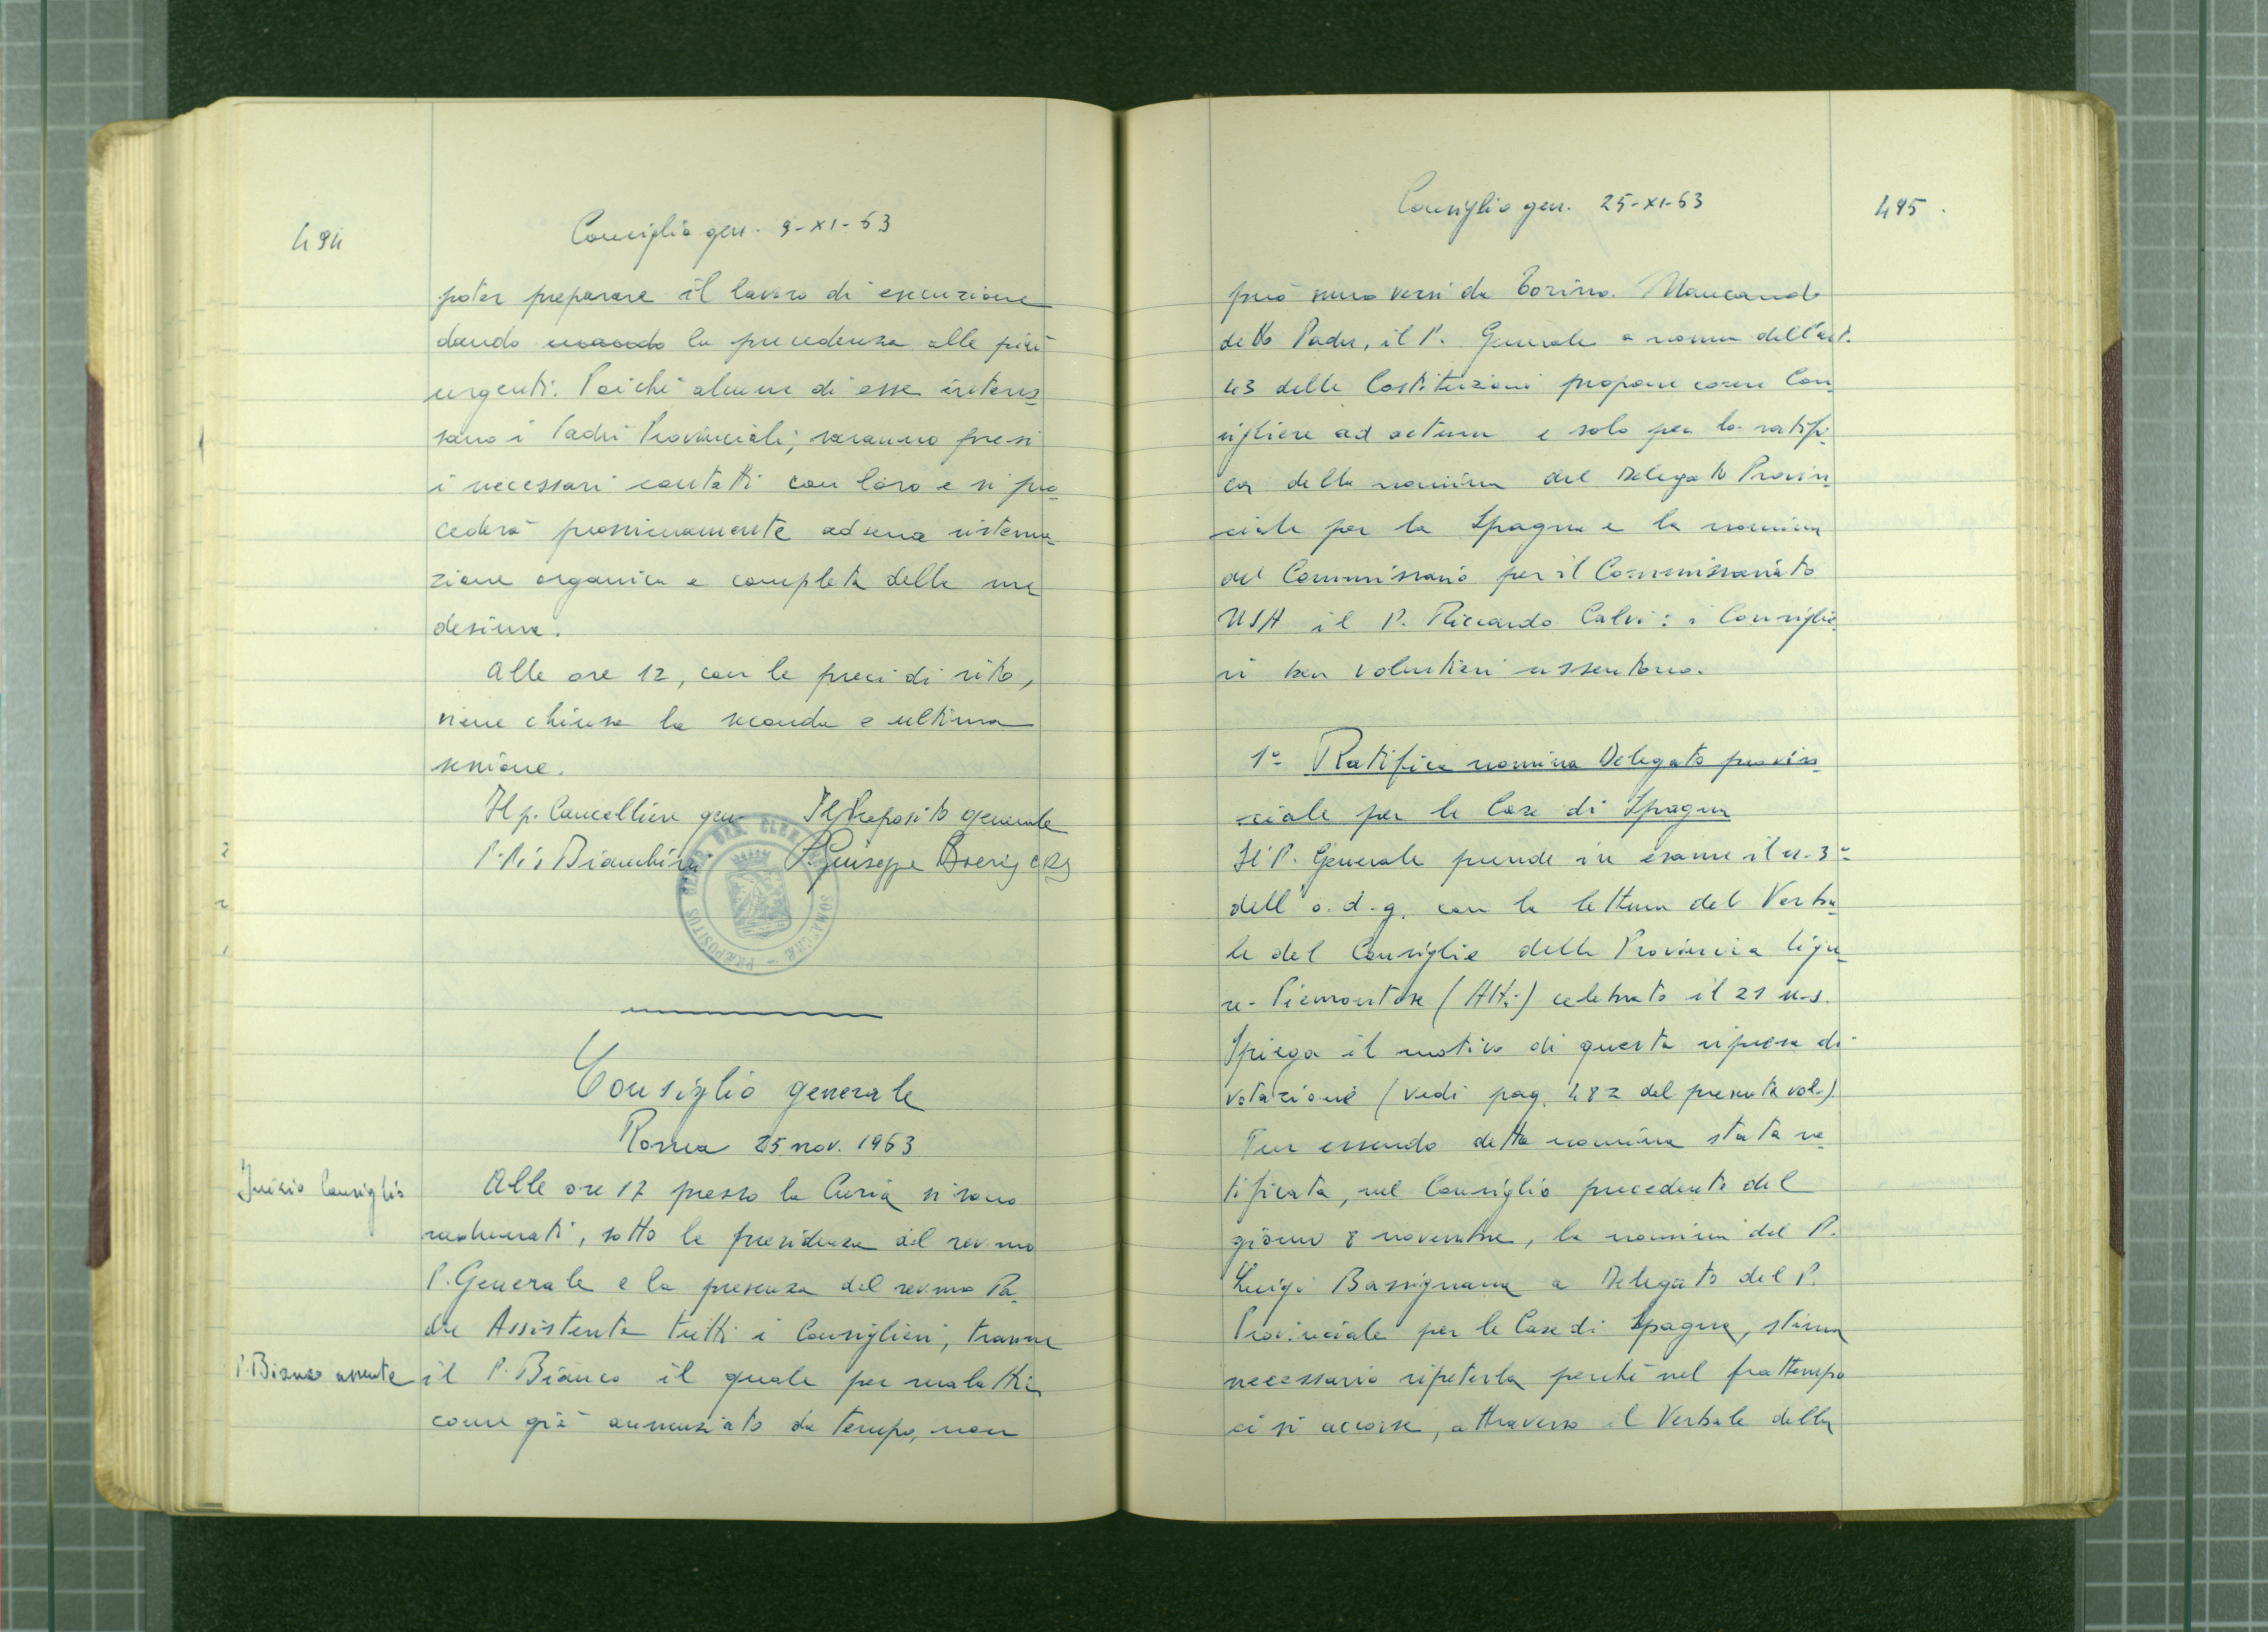 494
Consiglio gen. 9-XI-63
poter preparare il lavoro di esecuzione
dando la precedenza alle più
urgenti. Poiché alcune di esse interes_
sano i Padri Provinciali, saranno presi
i necessari contatti con loro e si pro_
cederà prossimamente ad una sistema_
zione organica e completa delle me_
desime.
Alle ore 12, con le preci di rito,
viene chiusa la seconda e ultima
sessione.
Il p. Cancelliere gen. Il Preposito generale
P. Pio Bianchini P. Giuseppe Boeris crs
PRÆPOSITUS
Consiglio generale
Roma 25 nov. 1963
Inizio Consiglio
Alle ore 17 presso la Curia si sono
radunati, sotto la presidenza del rev.mo
P. Generale e la presenza del rev.mo Pa_
dre Assistente tutti i Consiglieri, tranne
P. Bianco assente
il P. Bianco il quale per malattia
come già annunziato da tempo, non
Consiglio gen. 25-XI-63
495.
può muoversi da Torino. Mancando
detto Padre, il P. Generale a norma dell'art.
43 delle Costituzioni propone come Con_
sigliere ad actum e solo per la ratifi_
ca della nomina del Delegato Provin_
ciale per la Spagna e la nomina
del Commissario per il Commissariato
USA il P. Riccardo Calvi: i Consiglie_
ri ben volentieri assentono.
1º Ratifica nomina Delegato provin_
ciale per le Case di Spagna
Il P. Generale prende in esame il n. 3º
dell'o.d.g. con la lettura del Verba_
le del Consiglio della Provincia ligu_
re-Piemontese (Atti) celebrato il 21 u.s.
Spiega il motivo di questa ripresa di
votazione (vedi pag. 482 del presente vol.)
Pur essendo detta nomina stata ra_
tificata, nel Consiglio precedente del
giorno 8 novembre, la nomina del P.
Luigi Bassignana a Delegato del P.
Provinciale per le Case di Spagna, stima
necessario ripeterla perché nel frattempo
ci si accorse, attraverso il Verbale della